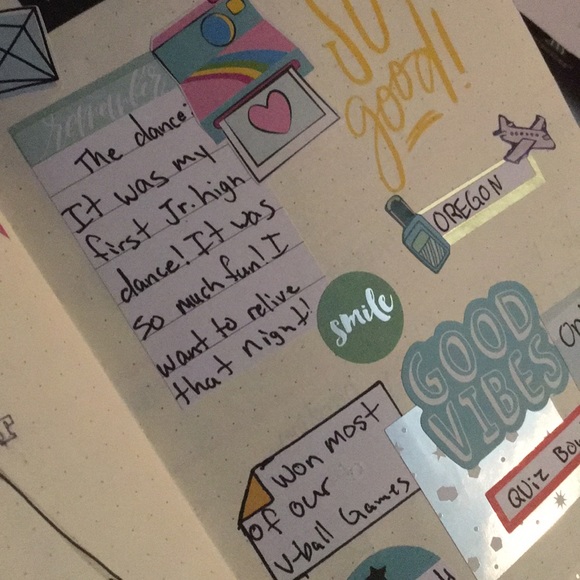 So
good!
remember
The dance:
It was my
first Jr. high
dance! It was
so much fun! I
want to relive
that night!
OREGON
smile
GOOD
VIBES
won most
of our
v-ball Games
Quiz